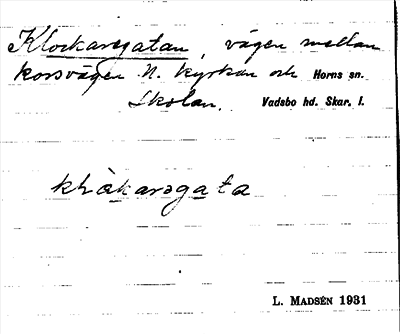 Klockaregatan, vägen mellan
korsvägen N. kyrkan och Horns sn.
skolan. Vadsbo hd. Skar. l.
khåkaregata
L. MADSÉN 1931